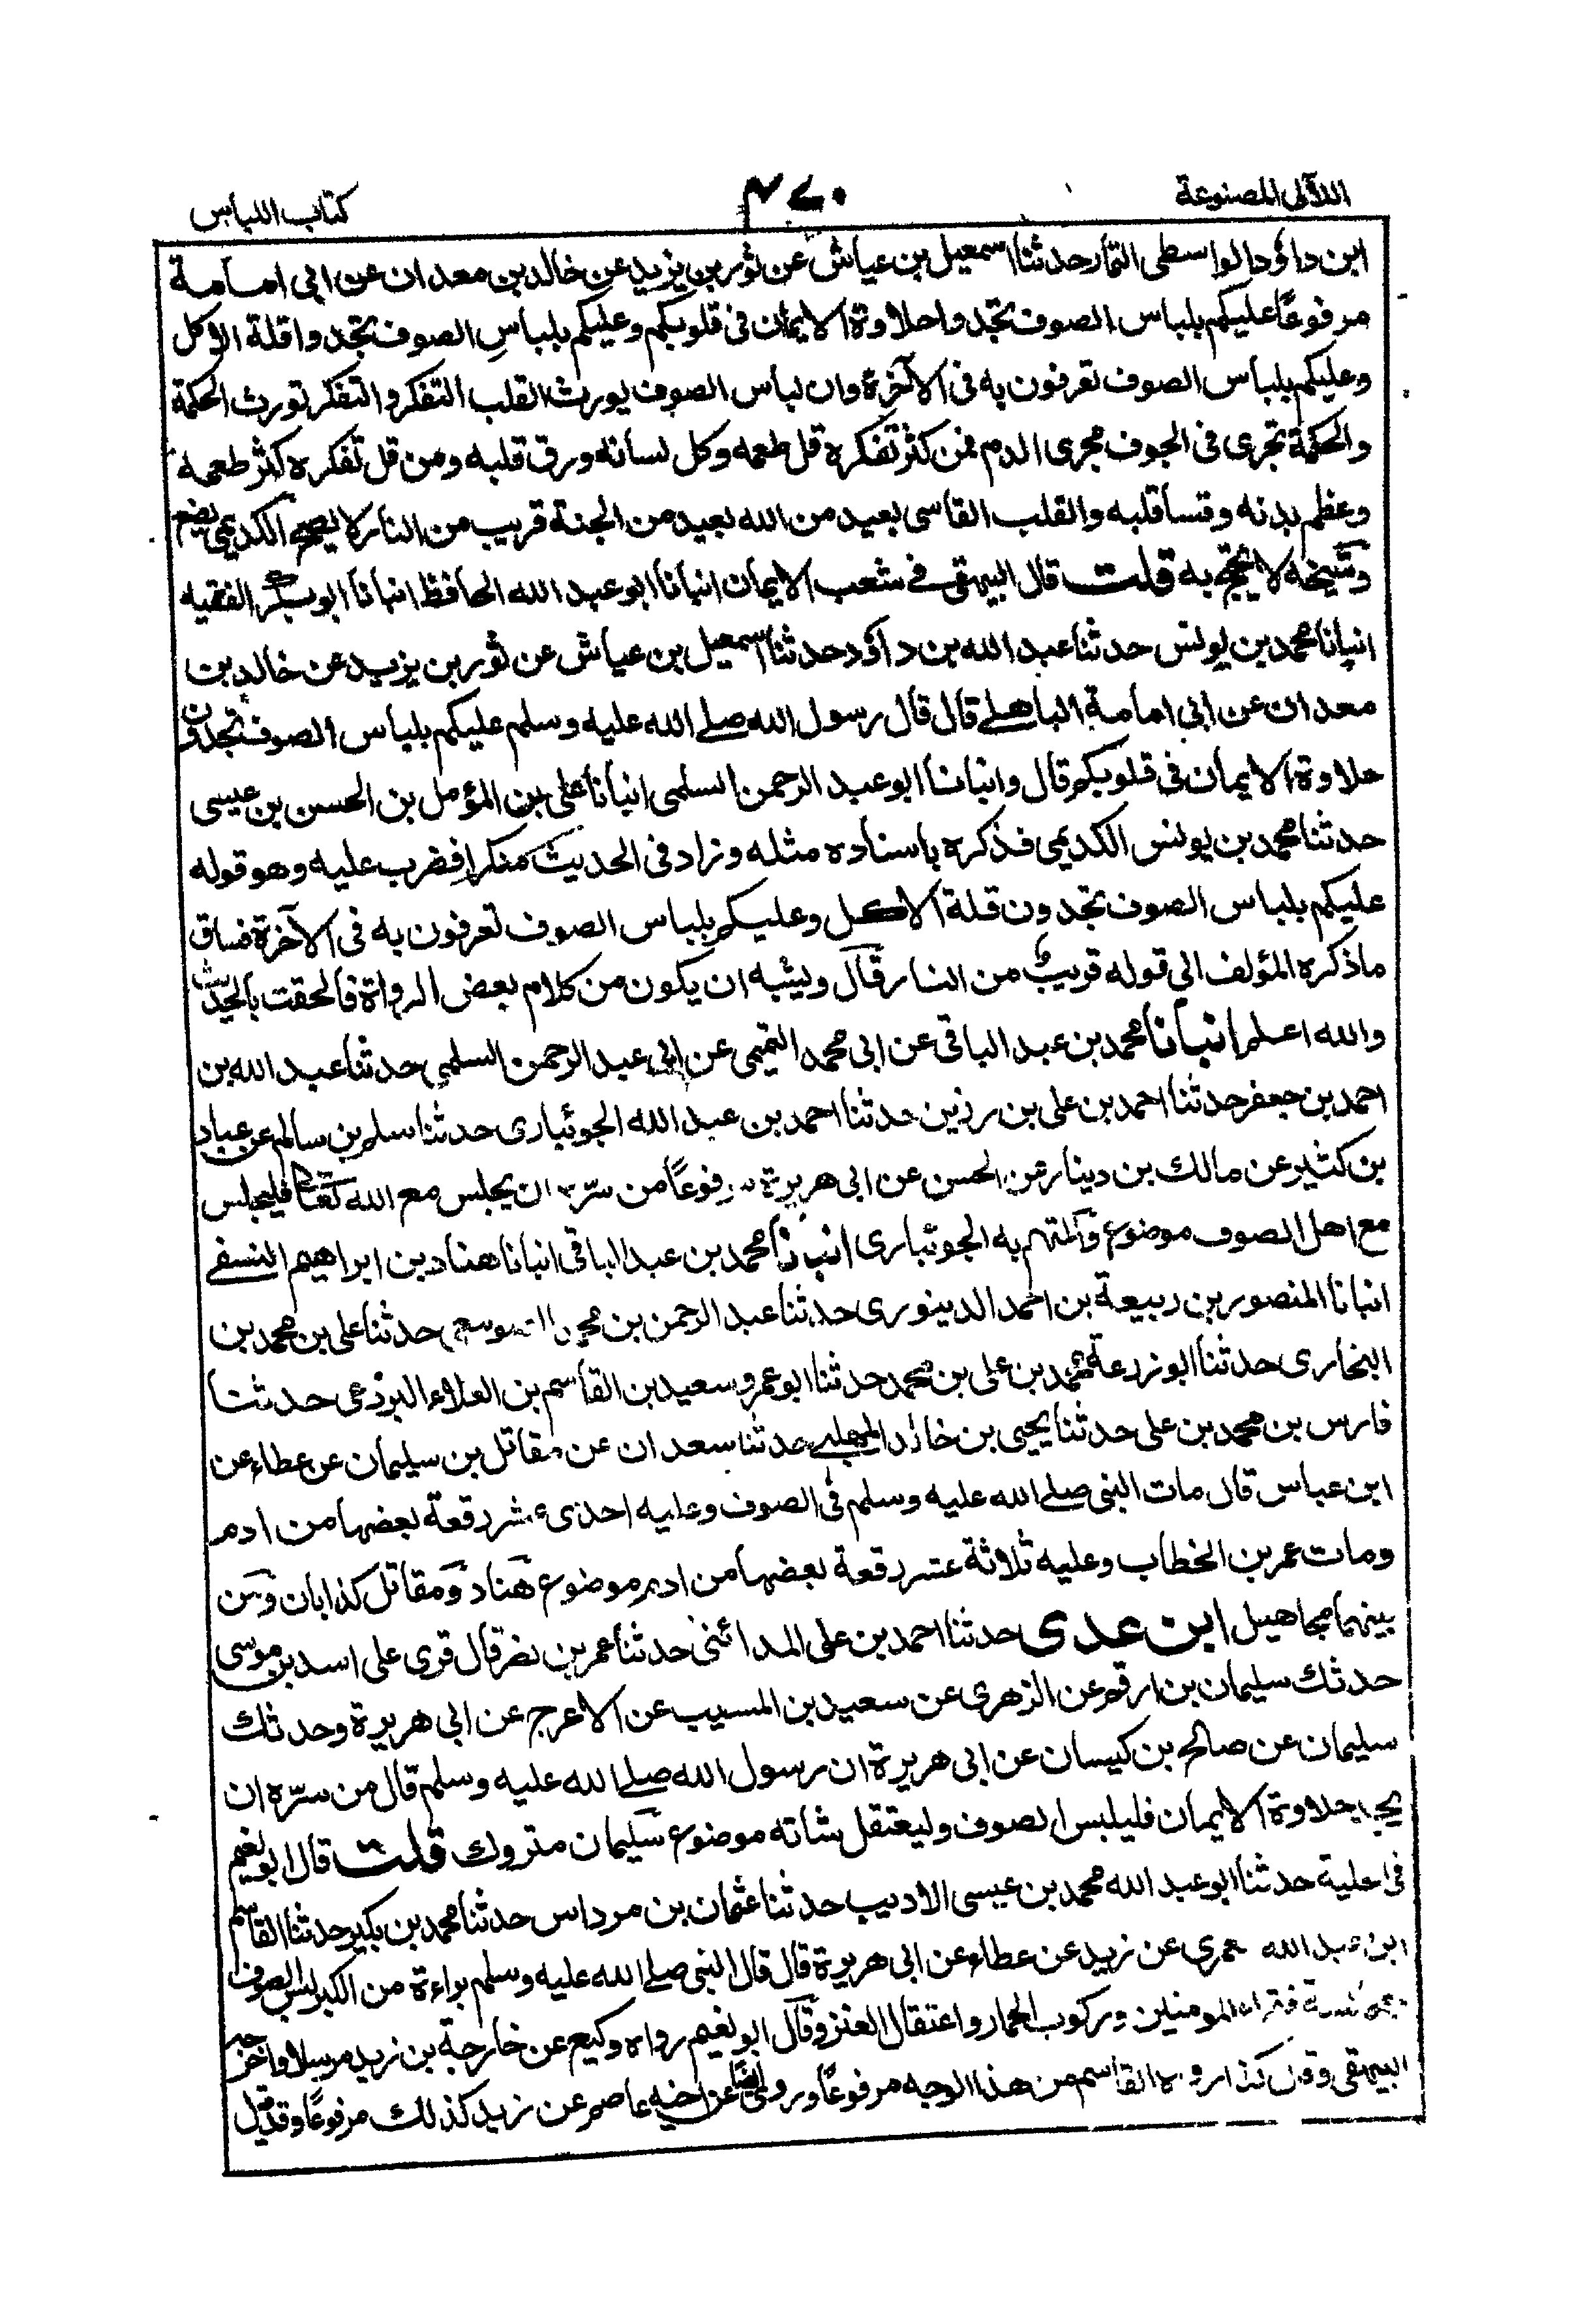 اللآلى المصنوعة
كتاب اللباس
ابن داؤد الواسطى التمار حدثنا اسمعيل بن عياش عن ثور بن يزيد عن خالد بن معدان عن ابى امامة
مرفوعًا عليكم بلباس الصوف تجدوا حلاوة الايمان فى قلوبكم وعليكم بلباس الصوف تجدوا قلة الاكل
وعليكم بلباس الصوف تعرفون به فى الآخرة وان لباس الصوف يورث القلب التفكر والتفكر تورث الحكمة
والحكمة تجرى فى الجوف مجرى الدم فمن كثر تفكره قل طعمه وكل لسانه ورق قلبه ومن قل تفكره كثر طعمه
وعظم بدنه وقسا قلبه والقلب القاسى بعيد من الله بعيد من الجنة قريب من النار لا يصح الكديمى يضع
وشيخه لا يحتج به قلت قال البيهقى فى شعب الايمان انبانا ابو عبد الله الحافظ انبانا ابو بكر الفقيه
انبانا محمد بن يونس حدثنا عبد الله بن داؤد حدثنا اسمعيل بن عياش عن ثور بن يزيد عن خالد بن
معدان عن ابى امامة الباهلى قال قال رسول الله صلى الله عليه وسلم عليكم بلباس الصوف تجدون
حلاوة الايمان فى قلوبكم قال وانبانا ابو عبد الرحمن السلمى انبانا على بن المؤمل بن الحسن بن عيسى
حدثنا محمد بن يونس الكديمى فذكره باسناده مثله وزاد فى الحديث منكرا فضرب عليه وهو قوله
عليكم بلباس الصوف تجدون قلة الاكل وعليكم بلباس الصوف تعرفون به فى الآخرة فساق
ماذكره المؤلف الى قوله قريب من النار قال ويشبه ان يكون من كلام بعض الرواة فالحقت بالحديث
والله اعلم انبانا محمد بن عبد الباقى عن ابى محمد التميمى عن ابى عبد الرحمن السلمى حدثنا عبد الله بن
احمد بن جعفر حدثنا احمد بن على بن رزين حدثنا احمد بن عبد الله الجوئبارى حدثنا سلم بن سالم عن عباد
بن كثير عن مالك بن دينار عن الحسن عن ابى هريرة مرفوعًا من سرّه ان يجلس مع الله تعالى فليجلس
مع اهل الصوف موضوع والمتهم به الجوئبارى انبانا محمد بن عبد الباقى انبانا هناد بن ابراهيم النسفى
انبانا المنصور بن ربيعة بن احمد الدينورى حدثنا عبد الرحمن بن محمد حدثنا على بن محمد بن
البخارى حدثنا ابو زرعة محمد بن على بن محمد حدثنا ابو عمرو سعيد بن القاسم بن العلاء البرذعى حدثنا
فارس بن محمد بن على حدثنا يحيى بن خالد المهلبى حدثنا سعدان عن مقاتل بن سليمان عن عطاء عن
ابن عباس قال مات النبى صلى الله عليه وسلم فى الصوف وعليه احدى عشر رقعة بعضها من ادم
ومات عمر بن الخطاب وعليه ثلاثة عشر رقعة بعضها من ادم موضوع هناد ومقاتل كذابان ومن
بينهما مجاهيل ابن عدى حدثنا احمد بن على المدائنى حدثنا عمر بن نضر قال قرى على اسد بن موسى
حدثك سليمان بن ارقم عن الزهرى عن سعيد بن المسيب عن الاعرج عن ابى هريرة وحدثك
سليمان عن صالح بن كيسان عن ابى هريرة ان رسول الله صلى الله عليه وسلم قال من سرّه ان
يجد حلاوة الايمان فليلبس الصوف وليعتقل شاته موضوع سليمان متروك قلت قال ابو نعيم
فى الحلية حدثنا ابو عبد الله محمد بن عيسى الاديب حدثنا عثمان بن مرداس حدثنا محمد بن بكير حدثنا القاسم
ابن عبد الله العمرى عن زيد عن عطاء عن ابى هريرة قال قال النبى صلى الله عليه وسلم براءة من الكبر لبس الصوف
ومجالسة فقراء المومنين وركوب الحمار واعتقال العنز وقال ابو نعيم رواه وكيع عن خارجة بن زيد مرسلا واخرجه
البيهقى وقال كذا رواه القاسم من هذا الوجه مرفوعًا وروى ايضًا عن اخيه عاصم عن زيد كذلك مرفوعًا وقد قيل